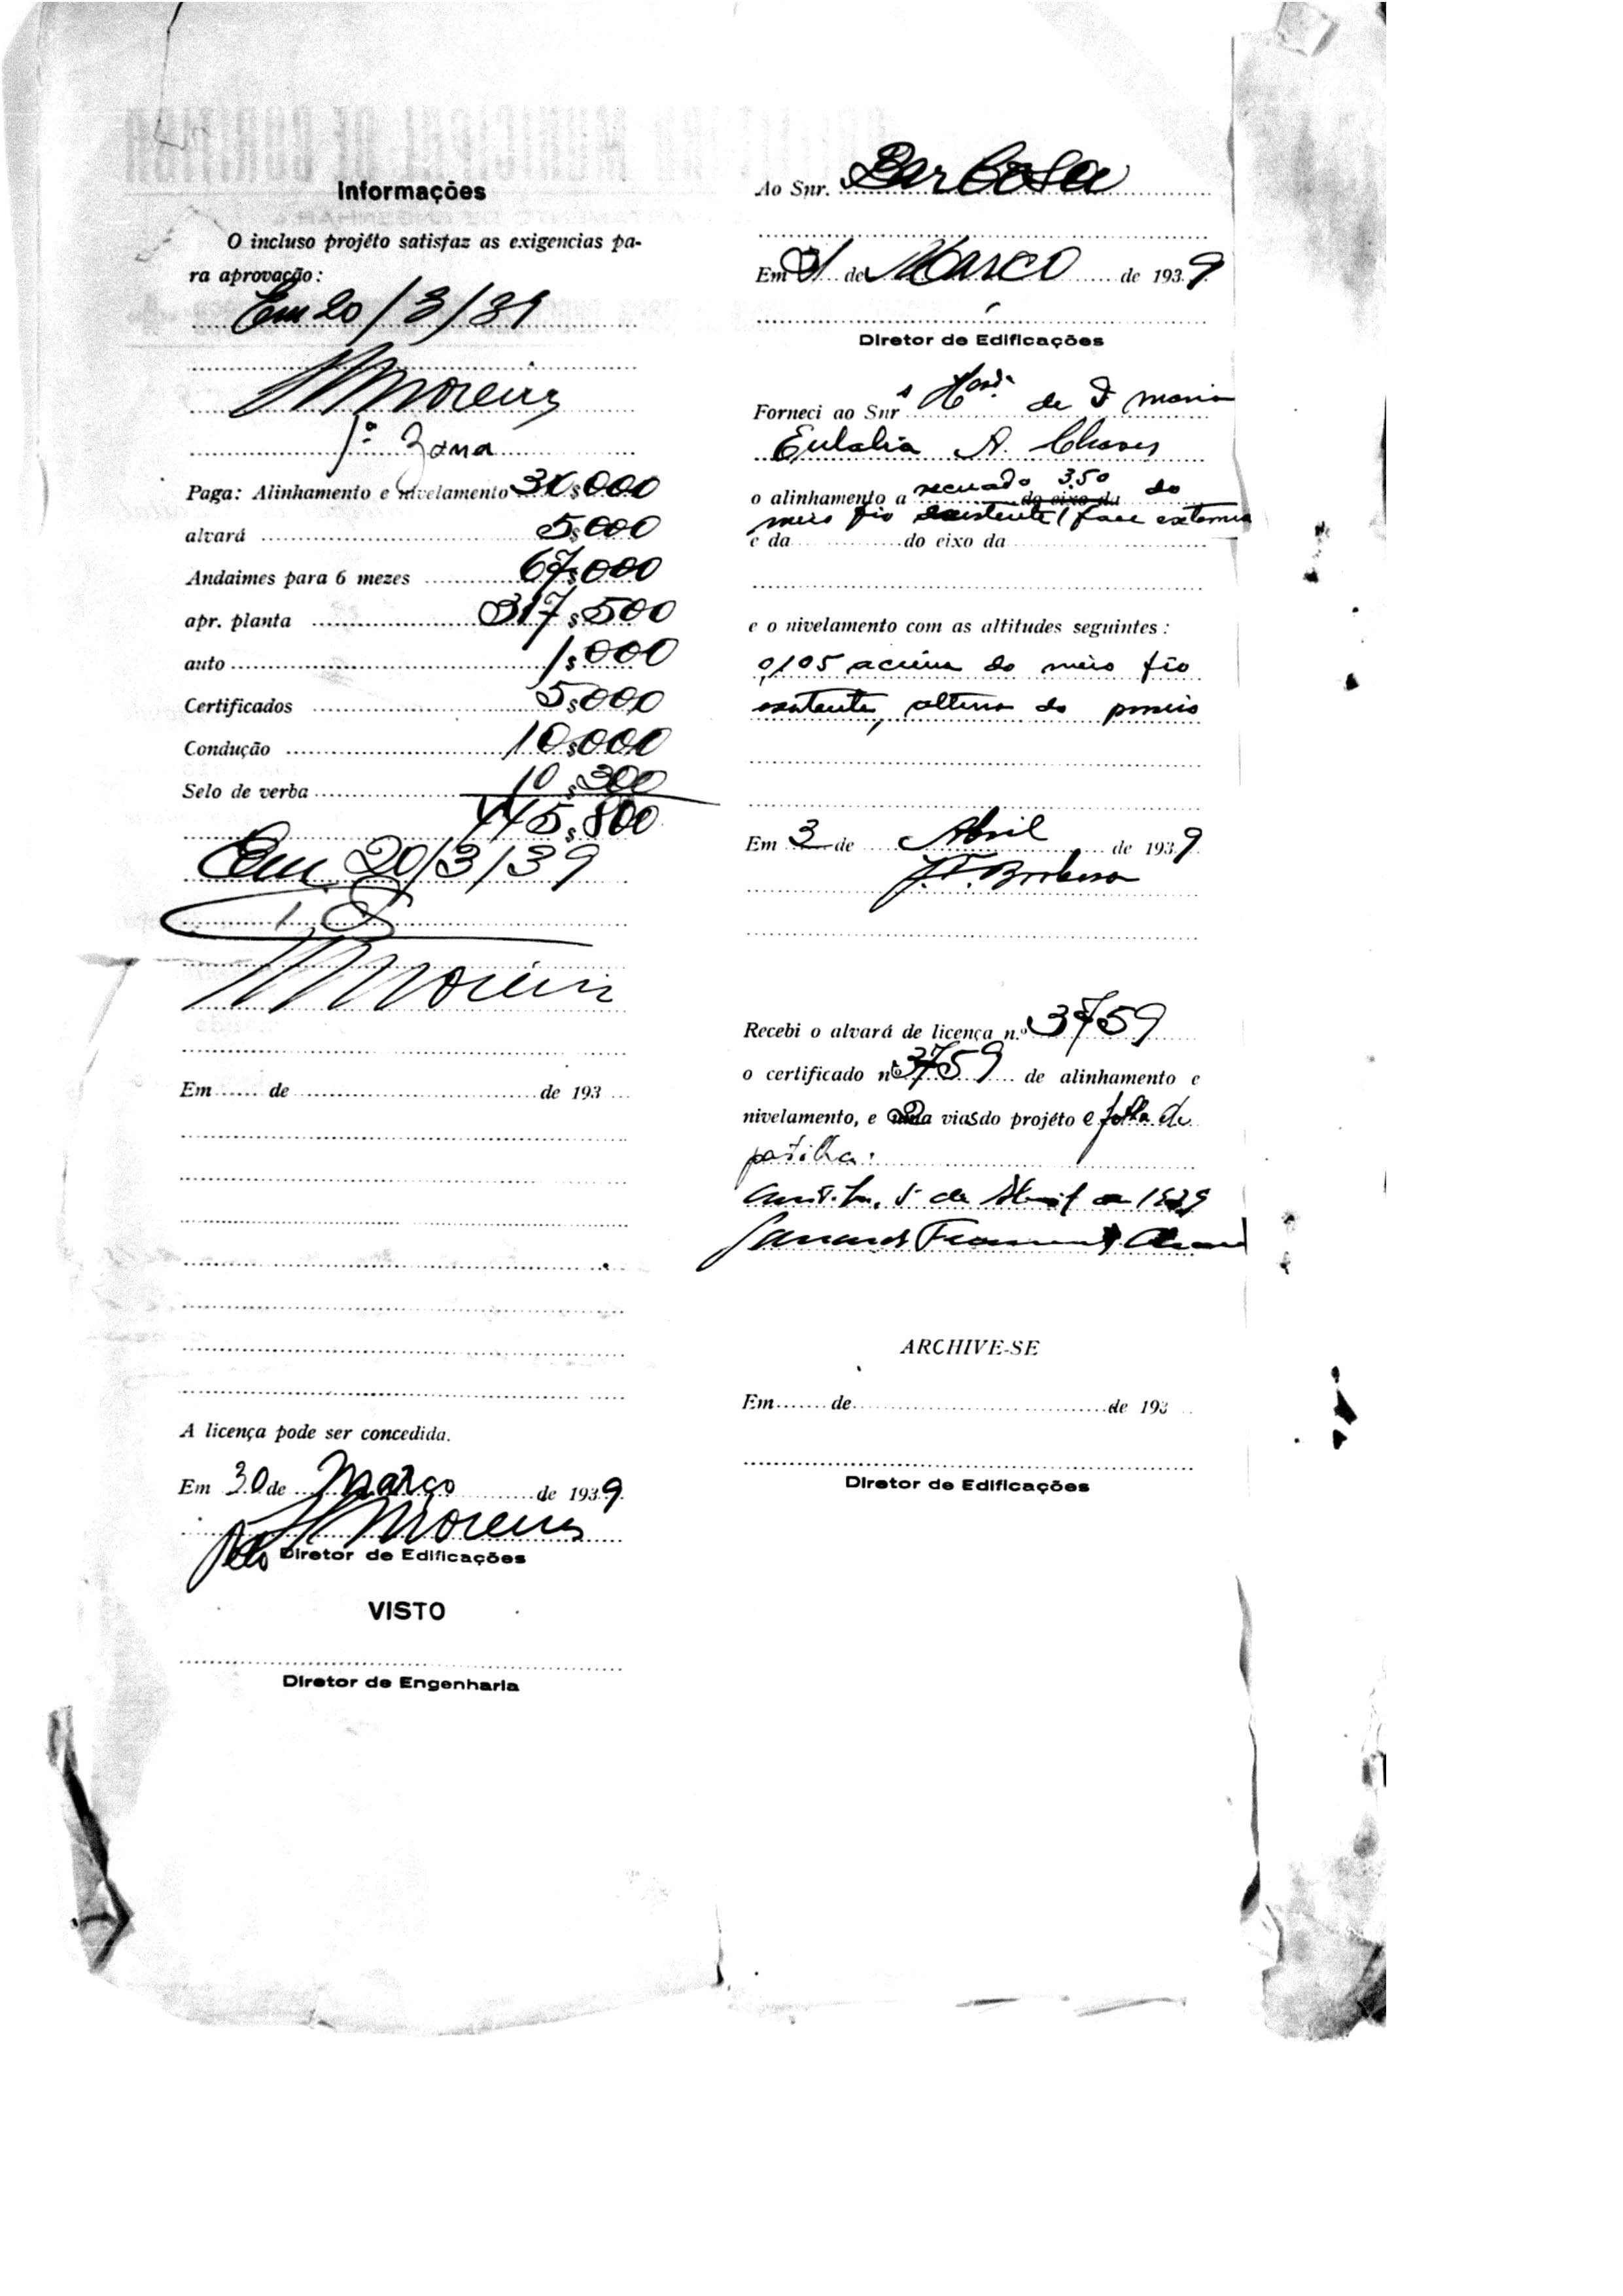 Informações
O incluso projéto satisfaz as exigencias pa-
ra aprovação:
Em 20/3/39
Moreira
1ª Zona
Paga: Alinhamento e nivelamento 30$000
alvará 5$000
Andaimes para 6 mezes 67$000
apr. planta 317$500
auto 1$000
Certificados 5$000
Condução 10$000
Selo de verba 10$300
445$800
Em 20/3/39
Moreira
Em de de 193
A licença pode ser concedida.
Em 30 de Março de 1939
Moreira
pelo Diretor de Edificações
VISTO
Diretor de Engenharia
Ao Snr. Barbosa
Em 31 de Março de 1939
Diretor de Edificações
Forneci ao Snr de D Maria
Eulalia A. Chaves
o alinhamento a recuado 3.50 do eixo da do
meio fio existente (face externa
e da do eixo da
e o nivelamento com as altitudes seguintes:
0,105 acima do meio fio
existente, altura do passeio
Em 3 de Abril de 1939
J. F. Barbosa
Recebi o alvará de licença n.º 3759
o certificado nº 3759 de alinhamento e
nivelamento, e 2 vias do projéto e folha de
patilha.
5 de Abril 1939
ARCHIVE-SE
Em de de 193
Diretor de Edificações